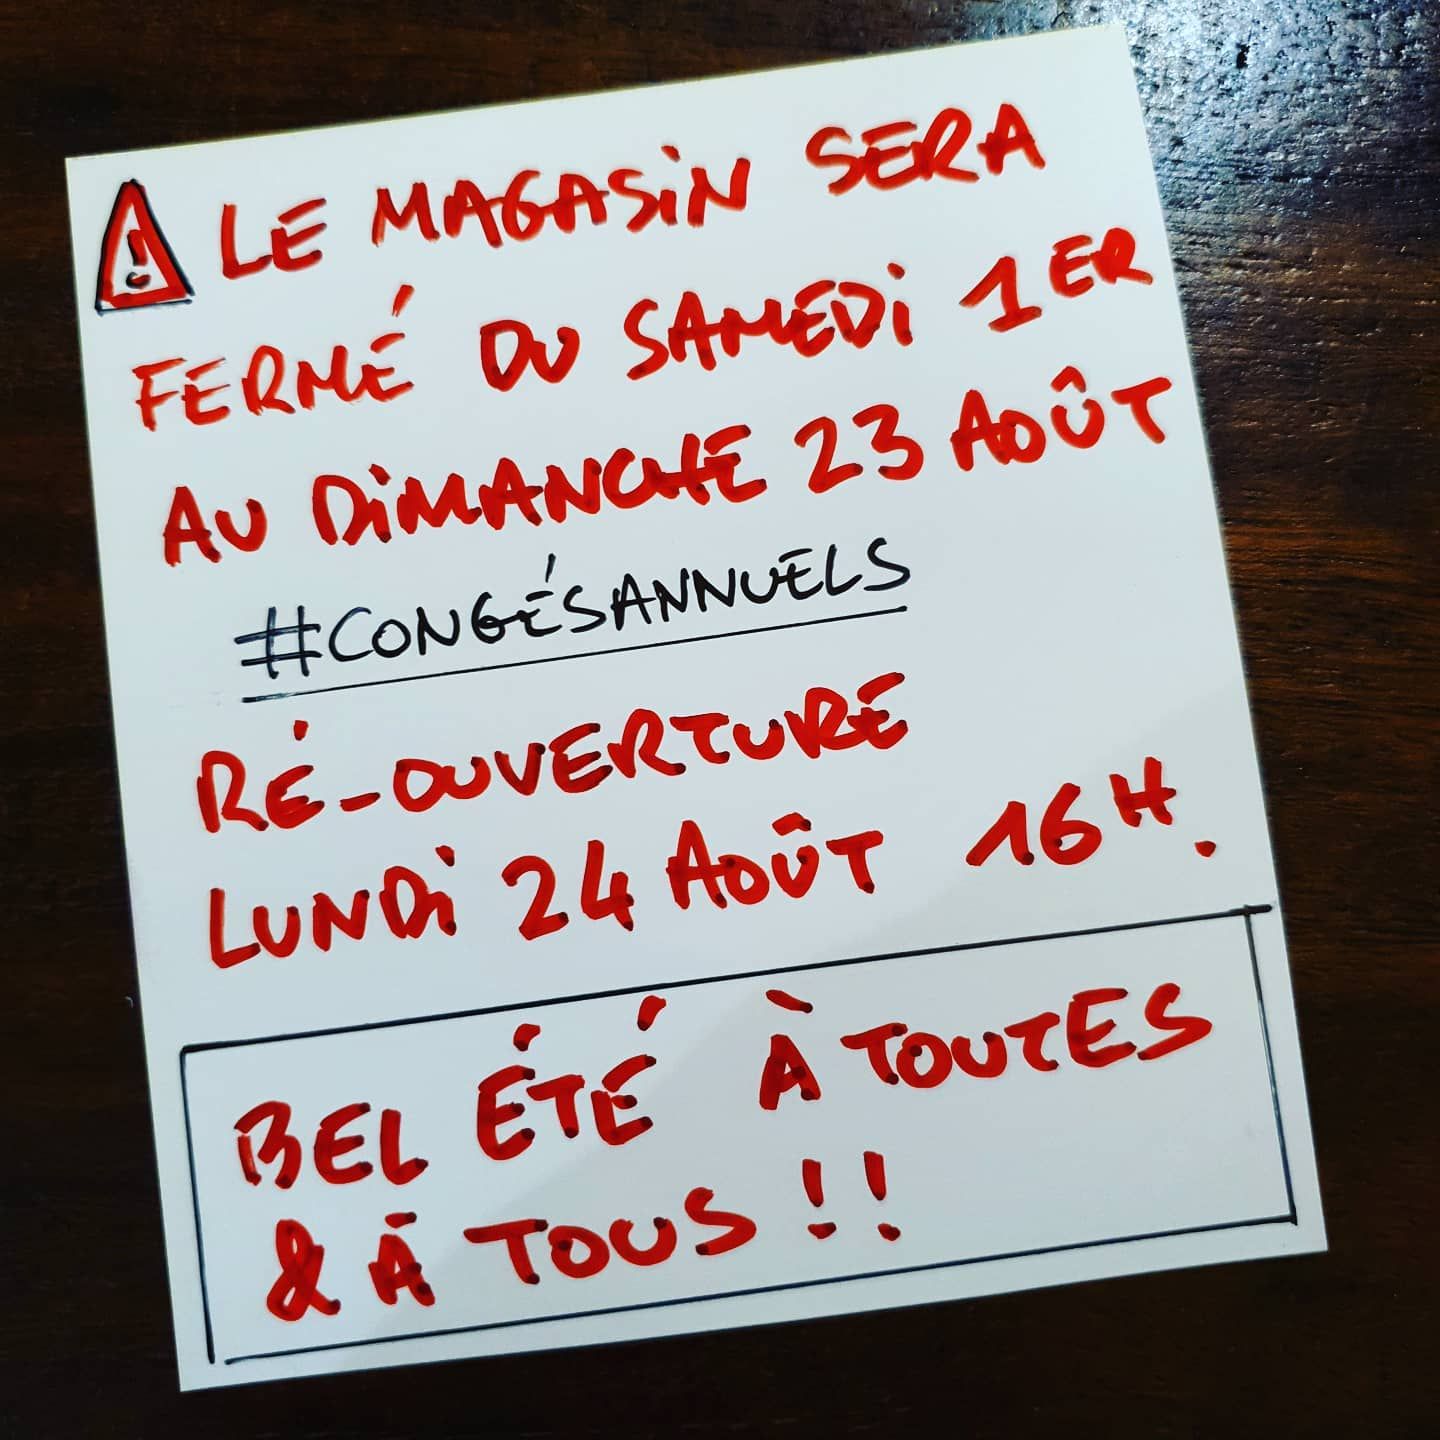 LE MAGASiN SERA
FERMÉ DU SAMEDi 1ER
AU DiMANCHE 23 AOÛT
#CONGÉSANNUELS
RÉ-OUVERTURE
LUNDi 24 AOÛT 16H.
BEL ÉTÉ À TOUTES
& À TOUS !!